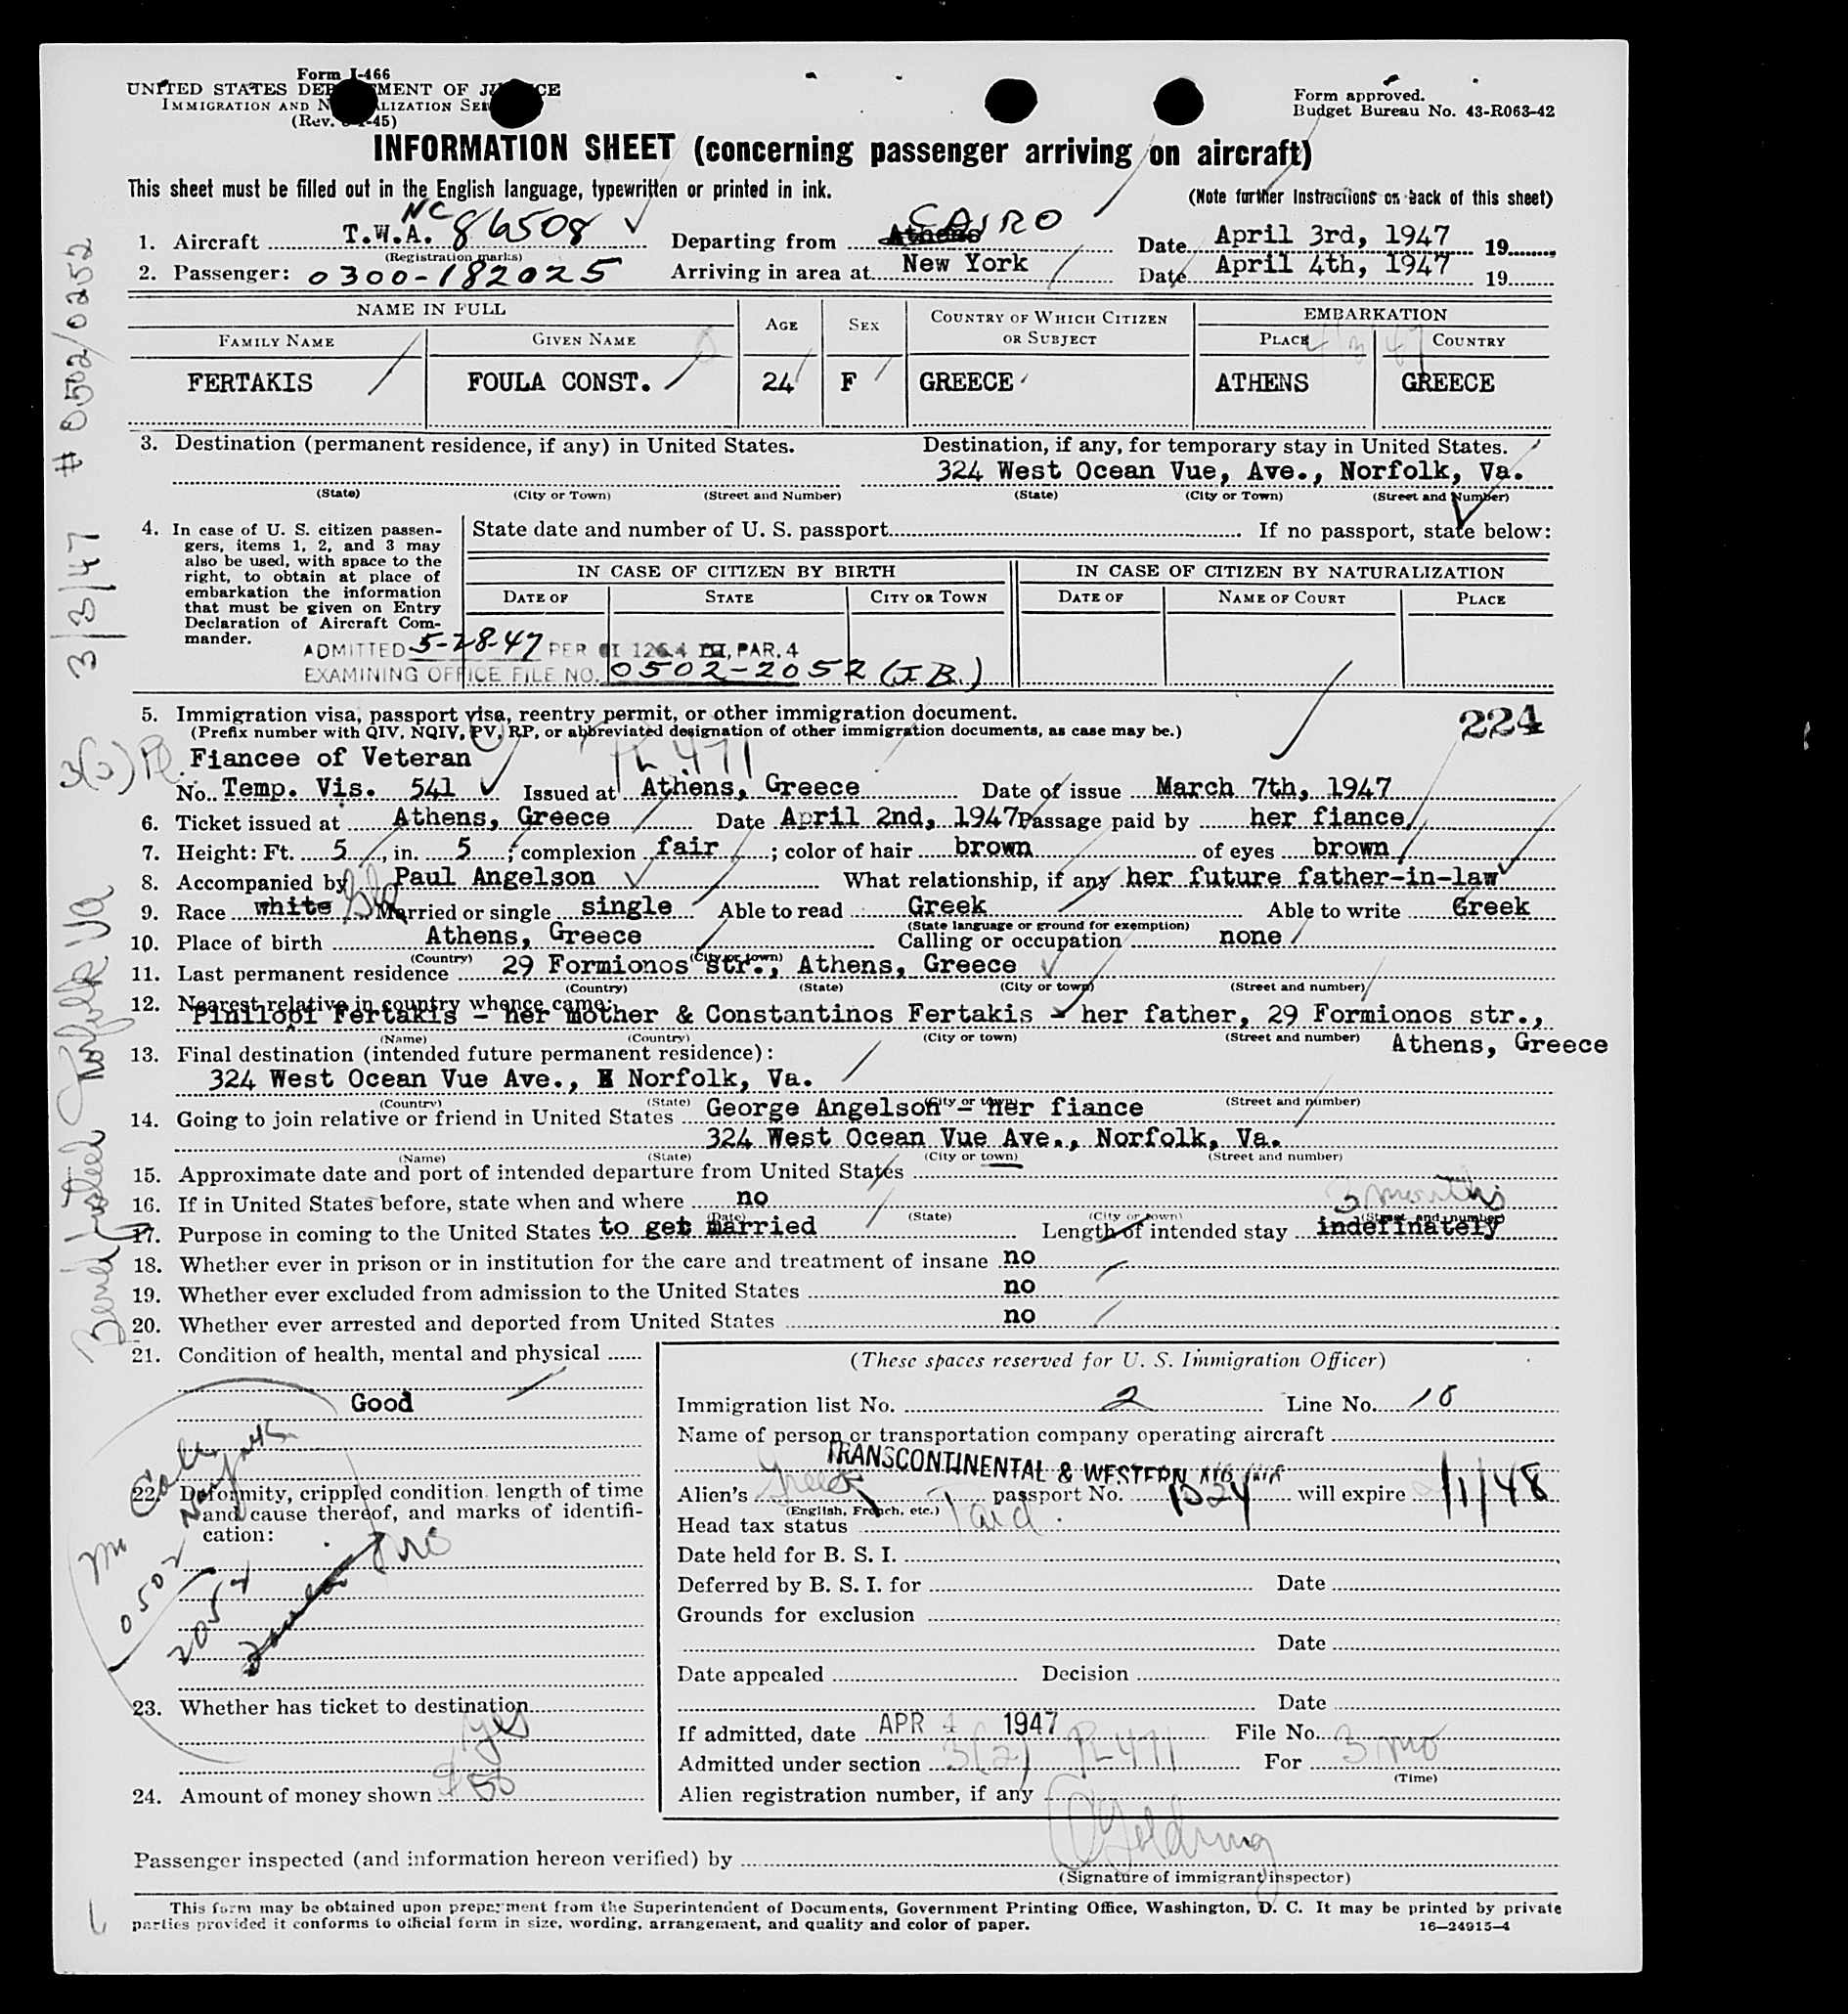 Form I-466
UNITED STATES DEPARTMENT OF JUSTICE
IMMIGRATION AND NATURALIZATION SERVICE
(Rev. -45)
Form approved.
Budget Bureau No. 43-R063-42
INFORMATION SHEET (concerning passenger arriving on aircraft)
This sheet must be filled out in the English language, typewritten or printed in ink.
(Note further Instructions on back of this sheet)
1. Aircraft T.W.A. NC 86508 Departing from Athens CAIRO Date April 3rd, 1947 19
(Registration marks)
2. Passenger: 0300-182025 Arriving in area at New York Date April 4th, 1947 19
NAME IN FULL AGE SEX COUNTRY OF WHICH CITIZEN OR SUBJECT EMBARKATION
FAMILY NAME GIVEN NAME PLACE COUNTRY
FERTAKIS FOULA CONST. 24 F GREECE ATHENS GREECE
3. Destination (permanent residence, if any) in United States. Destination, if any, for temporary stay in United States.
324 West Ocean Vue, Ave., Norfolk, Va.
(State) (City or Town) (Street and Number) (State) (City or Town) (Street and Number)
4. In case of U. S. citizen passengers, items 1, 2, and 3 may also be used, with space to the right, to obtain at place of embarkation the information that must be given on Entry Declaration of Aircraft Commander.
State date and number of U. S. passport If no passport, state below:
IN CASE OF CITIZEN BY BIRTH IN CASE OF CITIZEN BY NATURALIZATION
DATE OF STATE CITY OR TOWN DATE OF NAME OF COURT PLACE
ADMITTED 5-28-47 PER OI 126.4 III, PAR. 4
EXAMINING OFFICE FILE NO. 0502-2052 (J.B.)
5. Immigration visa, passport visa, reentry permit, or other immigration document.
(Prefix number with QIV, NQIV, PV, RP, or abbreviated designation of other immigration documents, as case may be.)
224
3(2) PL 471
Fiancee of Veteran
No. Temp. Vis. 541 Issued at Athens, Greece Date of issue March 7th, 1947
6. Ticket issued at Athens, Greece Date April 2nd, 1947 Passage paid by her fiance
7. Height: Ft. 5, in. 5; complexion fair; color of hair brown of eyes brown
8. Accompanied by Paul Angelson What relationship, if any her future father-in-law
9. Race white Married or single single Able to read Greek Able to write Greek
(State language or ground for exemption)
10. Place of birth Athens, Greece Calling or occupation none
(Country) (City or town)
11. Last permanent residence 29 Formionos str., Athens, Greece
(Country) (State) (City or town) (Street and number)
12. Nearest relative in country whence came:
Pinilopi Fertakis - her mother & Constantinos Fertakis - her father, 29 Formionos str.,
(Name) (Country) (City or town) (Street and number) Athens, Greece
13. Final destination (intended future permanent residence):
324 West Ocean Vue Ave., Norfolk, Va.
(Country) (State) (City or town) (Street and number)
14. Going to join relative or friend in United States George Angelson - her fiance
324 West Ocean Vue Ave., Norfolk, Va.
(Name) (State) (City or town) (Street and number)
15. Approximate date and port of intended departure from United States
16. If in United States before, state when and where no
(Date) (State) (City or town) (Street and number)
3 months
17. Purpose in coming to the United States to get married Length of intended stay indefinately
18. Whether ever in prison or in institution for the care and treatment of insane no
19. Whether ever excluded from admission to the United States no
20. Whether ever arrested and deported from United States no
21. Condition of health, mental and physical
Good
22. Deformity, crippled condition length of time and cause thereof, and marks of identification:
0502
2052
23. Whether has ticket to destination
yes
24. Amount of money shown $50
(These spaces reserved for U. S. Immigration Officer)
Immigration list No. 2 Line No. 18
Name of person or transportation company operating aircraft
TRANSCONTINENTAL & WESTERN AIR
Alien's Greek passport No. 1524 will expire 2/1/48
(English, French, etc.)
Head tax status Paid
Date held for B. S. I.
Deferred by B. S. I. for Date
Grounds for exclusion
Date
Date appealed Decision
Date
If admitted, date APR 4 1947 File No.
Admitted under section 3(2) PL 471 For 3 mo
(Time)
Alien registration number, if any
Passenger inspected (and information hereon verified) by
(Signature of immigrant inspector)
This form may be obtained upon prepayment from the Superintendent of Documents, Government Printing Office, Washington, D. C. It may be printed by private
parties provided it conforms to official form in size, wording, arrangement, and quality and color of paper.
16—24915-4
3/3/47 # 0502/0252
Norfolk Va